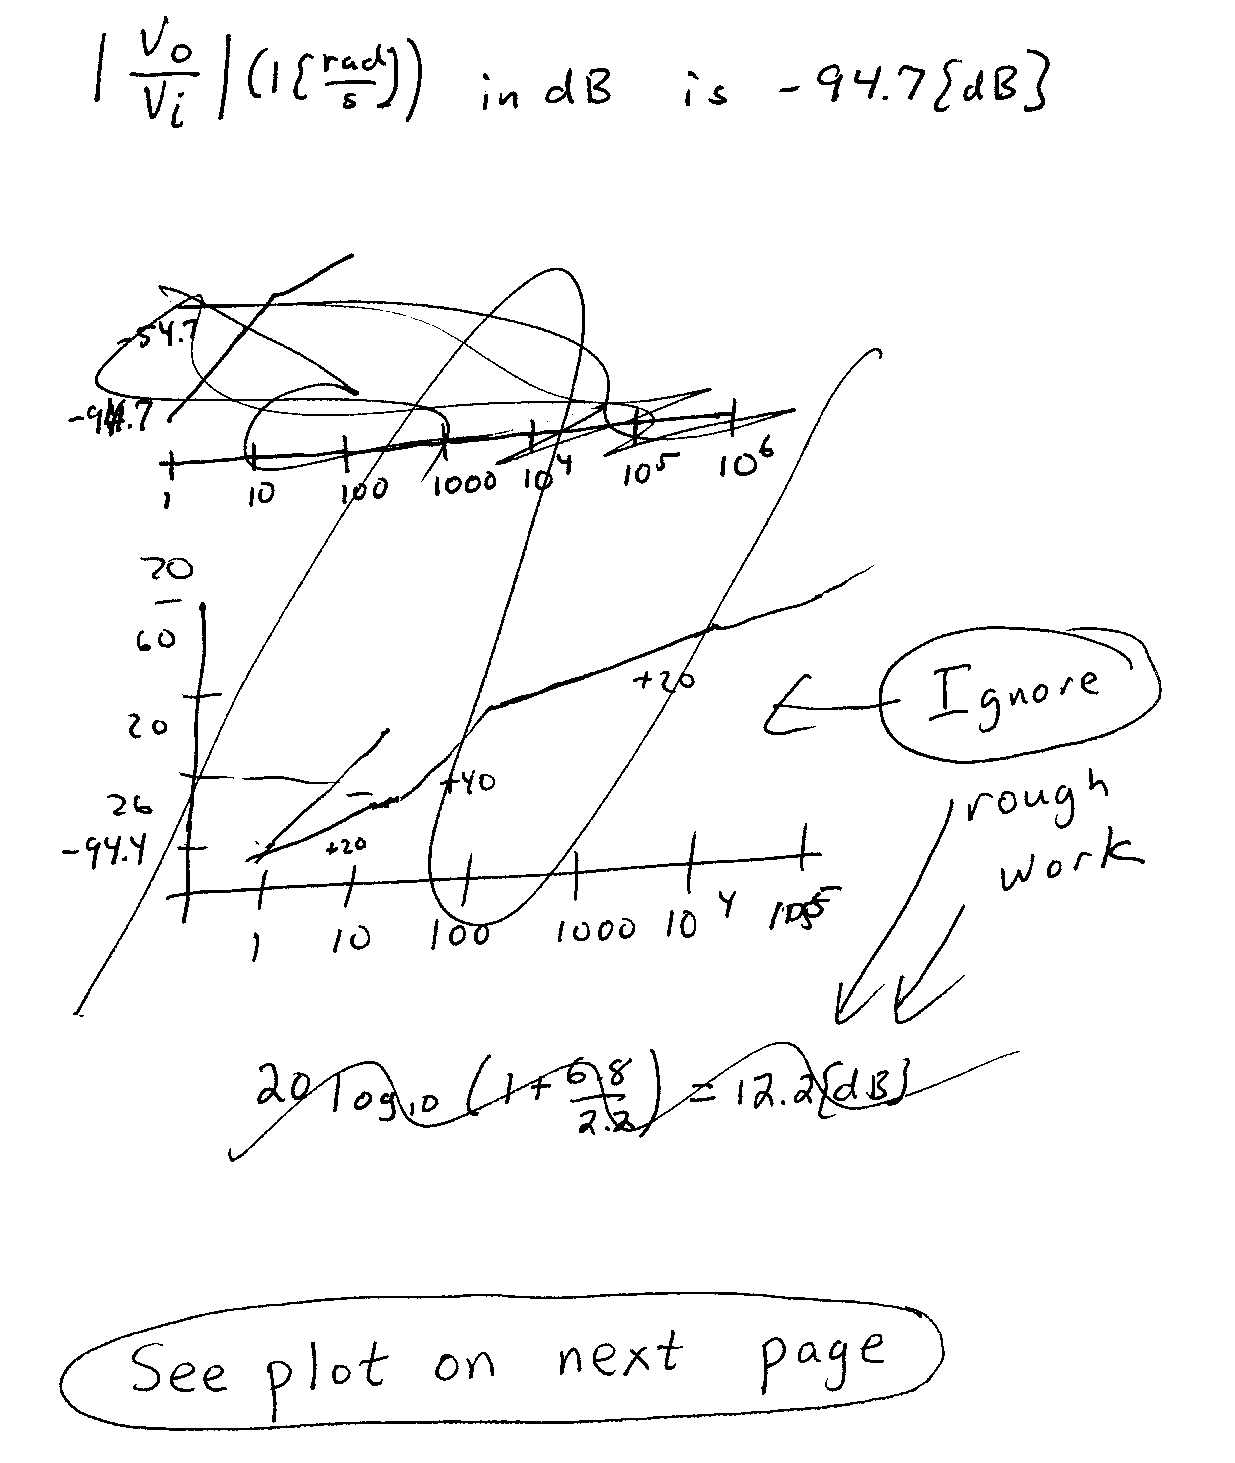 |Vo/Vi|(1{rad/s}) in dB is -94.7{dB}
-54.7
-94.7
1 10 100 1000 10^4 10^5 10^6
70
60
20
26
-94.4
+20
+40
+20
1 10 100 1000 10^4 10^5
Ignore
rough
work
20 log10 (1 + 6.8/2.2) = 12.2{dB}
See plot on next page